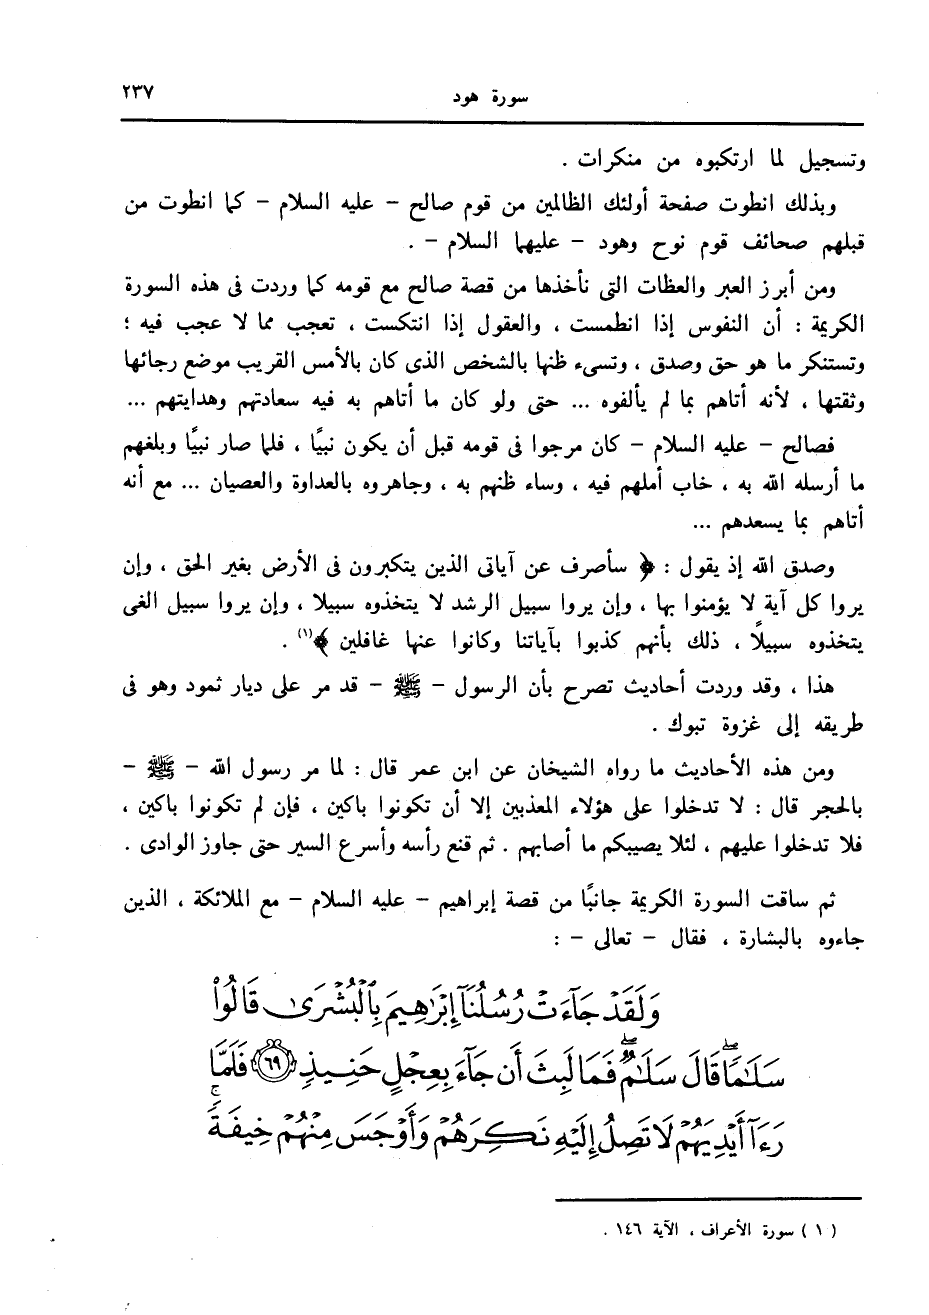 سورة هود ٢٣٧
وتسجيل لما ارتكبوه من منكرات .
وبذلك انطوت صفحة أولئك الظالمين من قوم صالح – عليه السلام – كما انطوت من
قبلهم صحائف قوم نوح وهود – عليهما السلام – .
ومن أبرز العبر والعظات التى نأخذها من قصة صالح مع قومه كما وردت فى هذه السورة
الكريمة : أن النفوس إذا انطمست ، والعقول إذا انتكست ، تعجب مما لا عجب فيه ؛
وتستنكر ما هو حق وصدق ، وتسىء ظنها بالشخص الذى كان بالأمس القريب موضع رجائها
وثقتها ، لأنه أتاهم بما لم يألفوه ... حتى ولو كان ما أتاهم به فيه سعادتهم وهدايتهم ...
فصالح – عليه السلام – كان مرجوا فى قومه قبل أن يكون نبيًا ، فلما صار نبيًا وبلغهم
ما أرسله الله به ، خاب أملهم فيه ، وساء ظنهم به ، وجاهروه بالعداوة والعصيان ... مع أنه
أتاهم بما يسعدهم ...
وصدق الله إذ يقول : ﴿ سأصرف عن آياتى الذين يتكبرون فى الأرض بغير الحق ، وإن
يروا كل آية لا يؤمنوا بها ، وإن يروا سبيل الرشد لا يتخذوه سبيلا ، وإن يروا سبيل الغى
يتخذوه سبيلًا ، ذلك بأنهم كذبوا بآياتنا وكانوا عنها غافلين ﴾(١) .
هذا ، وقد وردت أحاديث تصرح بأن الرسول – ﷺ – قد مر على ديار ثمود وهو فى
طريقه إلى غزوة تبوك .
ومن هذه الأحاديث ما رواه الشيخان عن ابن عمر قال : لما مر رسول الله – ﷺ –
بالحجر قال : لا تدخلوا على هؤلاء المعذبين إلا أن تكونوا باكين ، فإن لم تكونوا باكين ،
فلا تدخلوا عليهم ، لئلا يصيبكم ما أصابهم . ثم قنع رأسه وأسرع السير حتى جاوز الوادى .
ثم ساقت السورة الكريمة جانبًا من قصة إبراهيم – عليه السلام – مع الملائكة ، الذين
جاءوه بالبشارة ، فقال – تعالى – :
وَلَقَدْ جَآءَتْ رُسُلُنَآ إِبْرَٰهِيمَ بِالْبُشْرَىٰ قَالُوا۟
سَلَٰمًا ۖ قَالَ سَلَٰمٌ ۖ فَمَا لَبِثَ أَن جَآءَ بِعِجْلٍ حَنِيذٍ ٦٩ فَلَمَّا
رَءَآ أَيْدِيَهُمْ لَا تَصِلُ إِلَيْهِ نَكِرَهُمْ وَأَوْجَسَ مِنْهُمْ خِيفَةً ۚ
( ١ ) سورة الأعراف ، الآية ١٤٦ .